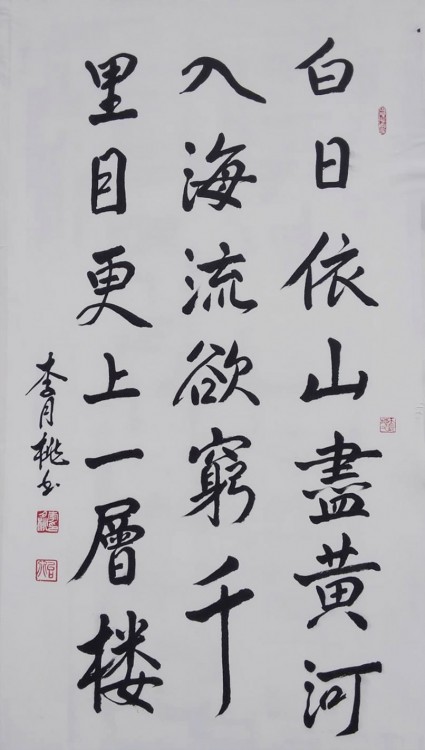 白日依山盡黄河
入海流欲窮千
里目更上一層楼
李月桃书